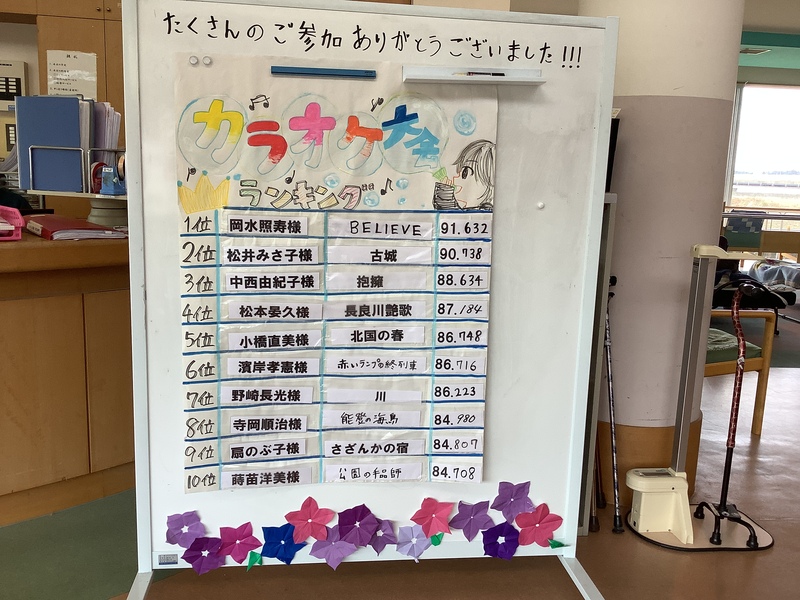 たくさんのご参加ありがとうございました!!!
カラオケ大会
ランキング
1位 岡水照寿様 BELIEVE 91.632
2位 松井みさ子様 古城 90.738
3位 中西由紀子様 抱擁 88.634
4位 松本晏久様 長良川艶歌 87.184
5位 小橋直美様 北国の春 86.748
6位 濱岸孝憲様 赤いランプの終列車 86.716
7位 野崎長光様 川 86.223
8位 寺岡順治様 能登の海鳥 84.980
9位 扇のぶ子様 さざんかの宿 84.807
10位 蒔苗洋美様 公園の手品師 84.708